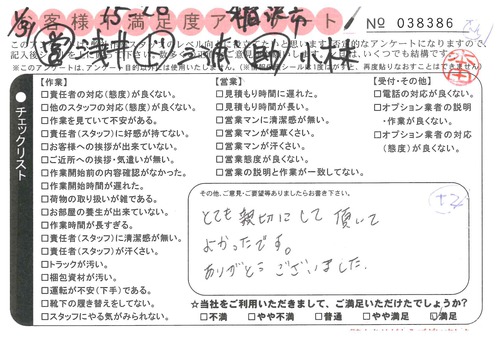 お客様満足度アンケート!
No 038386
(※このアンケートは、アンケート目的以外には使用いたしません。
チェックリスト
【作業】
□責任者の対応(態度)が良くない。
□他のスタッフの対応(態度)が良くない。
□作業を見ていて不安がある。
□責任者(スタッフ)に好感が持てない。
□お客様への挨拶が出来ていない。
□ご近所への挨拶・気遣いが無い。
□作業開始前の内容確認がなかった。
□作業開始時間が遅れた。
□荷物の取り扱いが雑である。
□お部屋の養生が出来ていない。
□作業時間が長すぎる。
□責任者(スタッフ)に清潔感が無い。
□責任者(スタッフ)が汗くさい。
□トラックが汚い。
□梱包資材が汚い。
□運転が不安(下手)である。
□靴下の履き替えをしてない。
□スタッフにやる気がみられない。
【営業】
□見積もり時間に遅れた。
□見積もり時間が長い。
□営業マンに清潔感が無い。
□営業マンが煙草くさい。
□営業マンが汗くさい。
□営業態度が良くない。
□営業の説明と作業が一致してない。
【受付・その他】
□電話の対応が良くない。
□オプション業者の説明
・作業が良くない。
□オプション業者の対応
(態度)が良くない。
その他、ご意見・ご要望等ありましたらお書き下さい。
とても親切にして頂いて
よかったです。
ありがとうございました。
☆当社をご利用いただきまして、ご満足いただけたでしょうか?
□不満 □やや不満 □普通 □やや満足 □満足